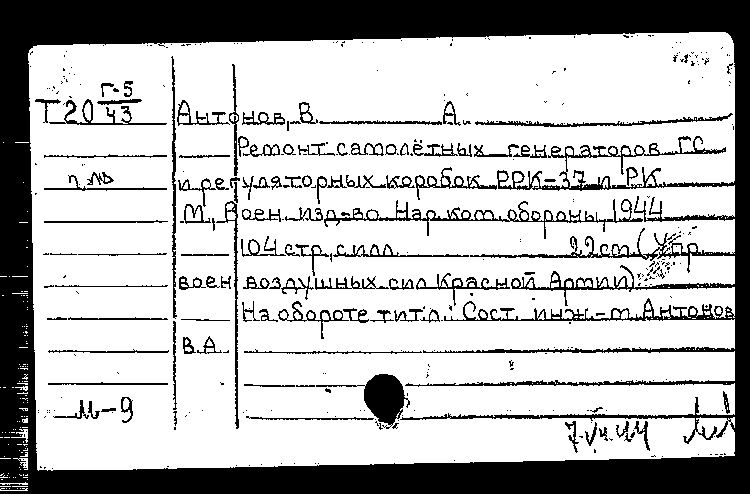 Т20 Г-5/43
Антонов, В. А.
Ремонт самолётных генераторов ГС
и регуляторных коробок РРК-37 и РК
М., Воен. изд-во Нар. ком. обороны, 1944
104 стр., с илл. 22 cm (Упр.
воен. воздушных сил Красной Армии)
На обороте тит. л.: Сост. инж.-м. Антонов
В.А.
М-9